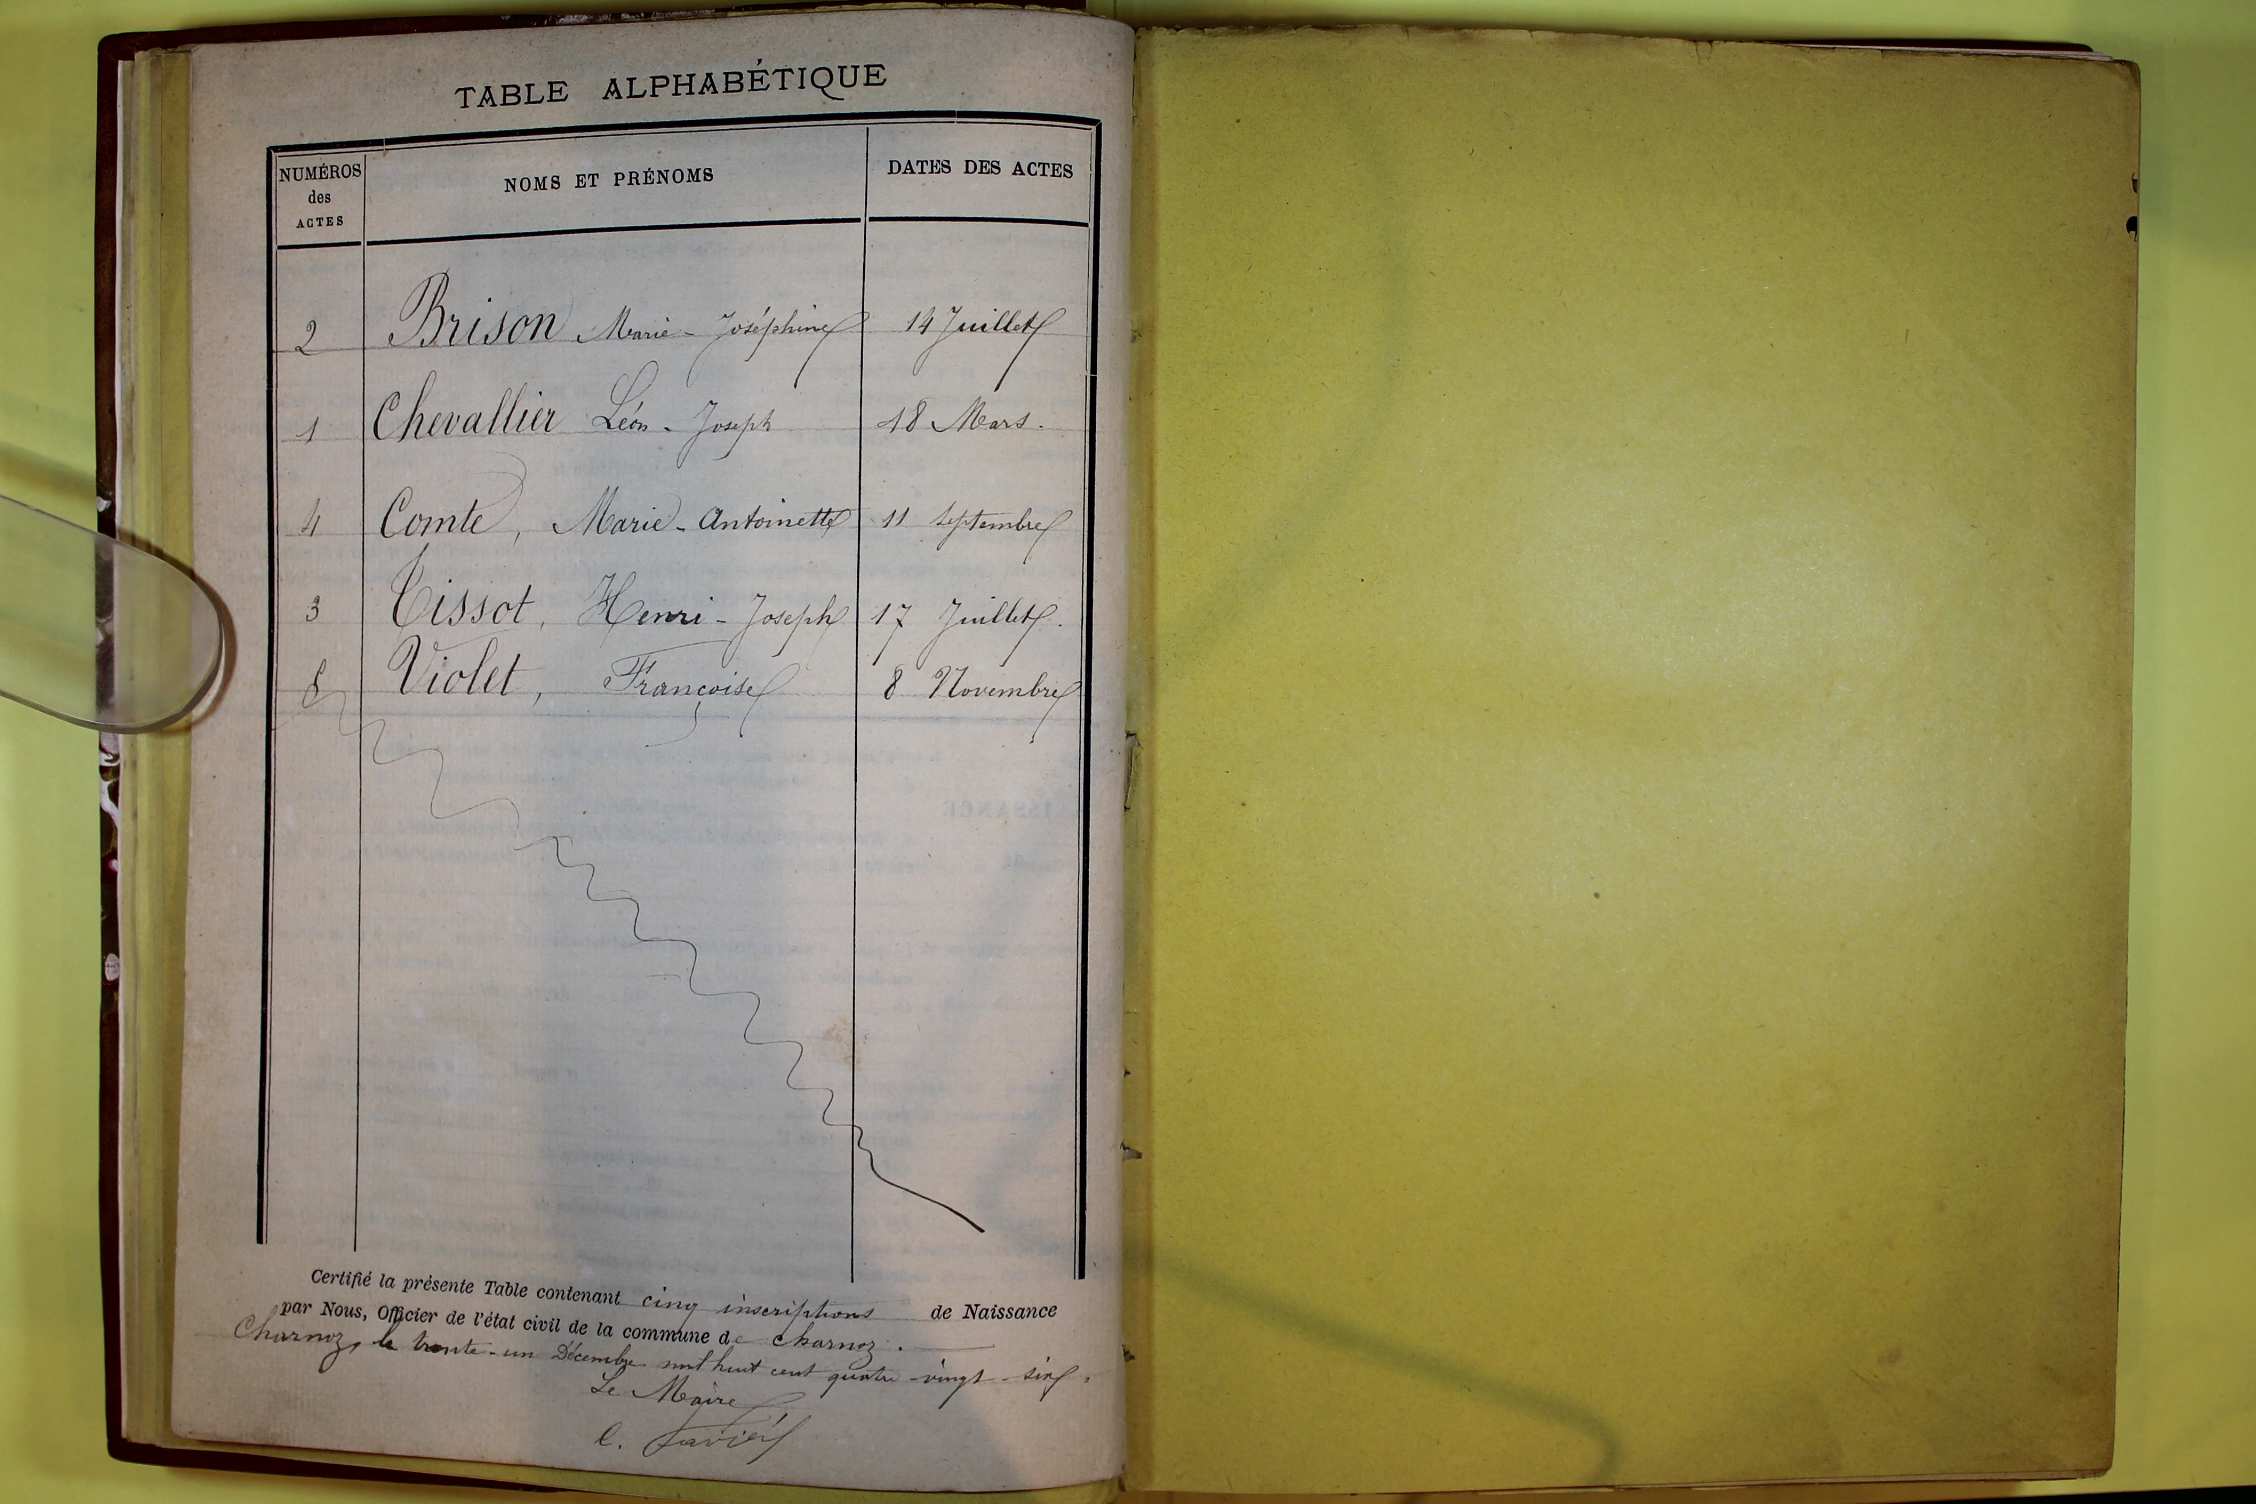 TABLE ALPHABÉTIQUE
NUMÉROS des ACTES NOMS ET PRÉNOMS DATES DES ACTES
2 Brison Marie-Joséphine 14 Juillet
1 Chevallier Léon-Joseph 18 Mars.
4 Comte, Marie-Antoinette 11 Septembre
3 Tissot, Henri-Joseph 17 Juillet.
Violet, Françoise 8 Novembre
Certifié la présente Table contenant cinq inscriptions de Naissance
par Nous, Officier de l'état civil de la commune de Charnoz.
Charnoz, le trente-un Décembre mil huit cent quatre-vingt-six.
Le Maire
C.